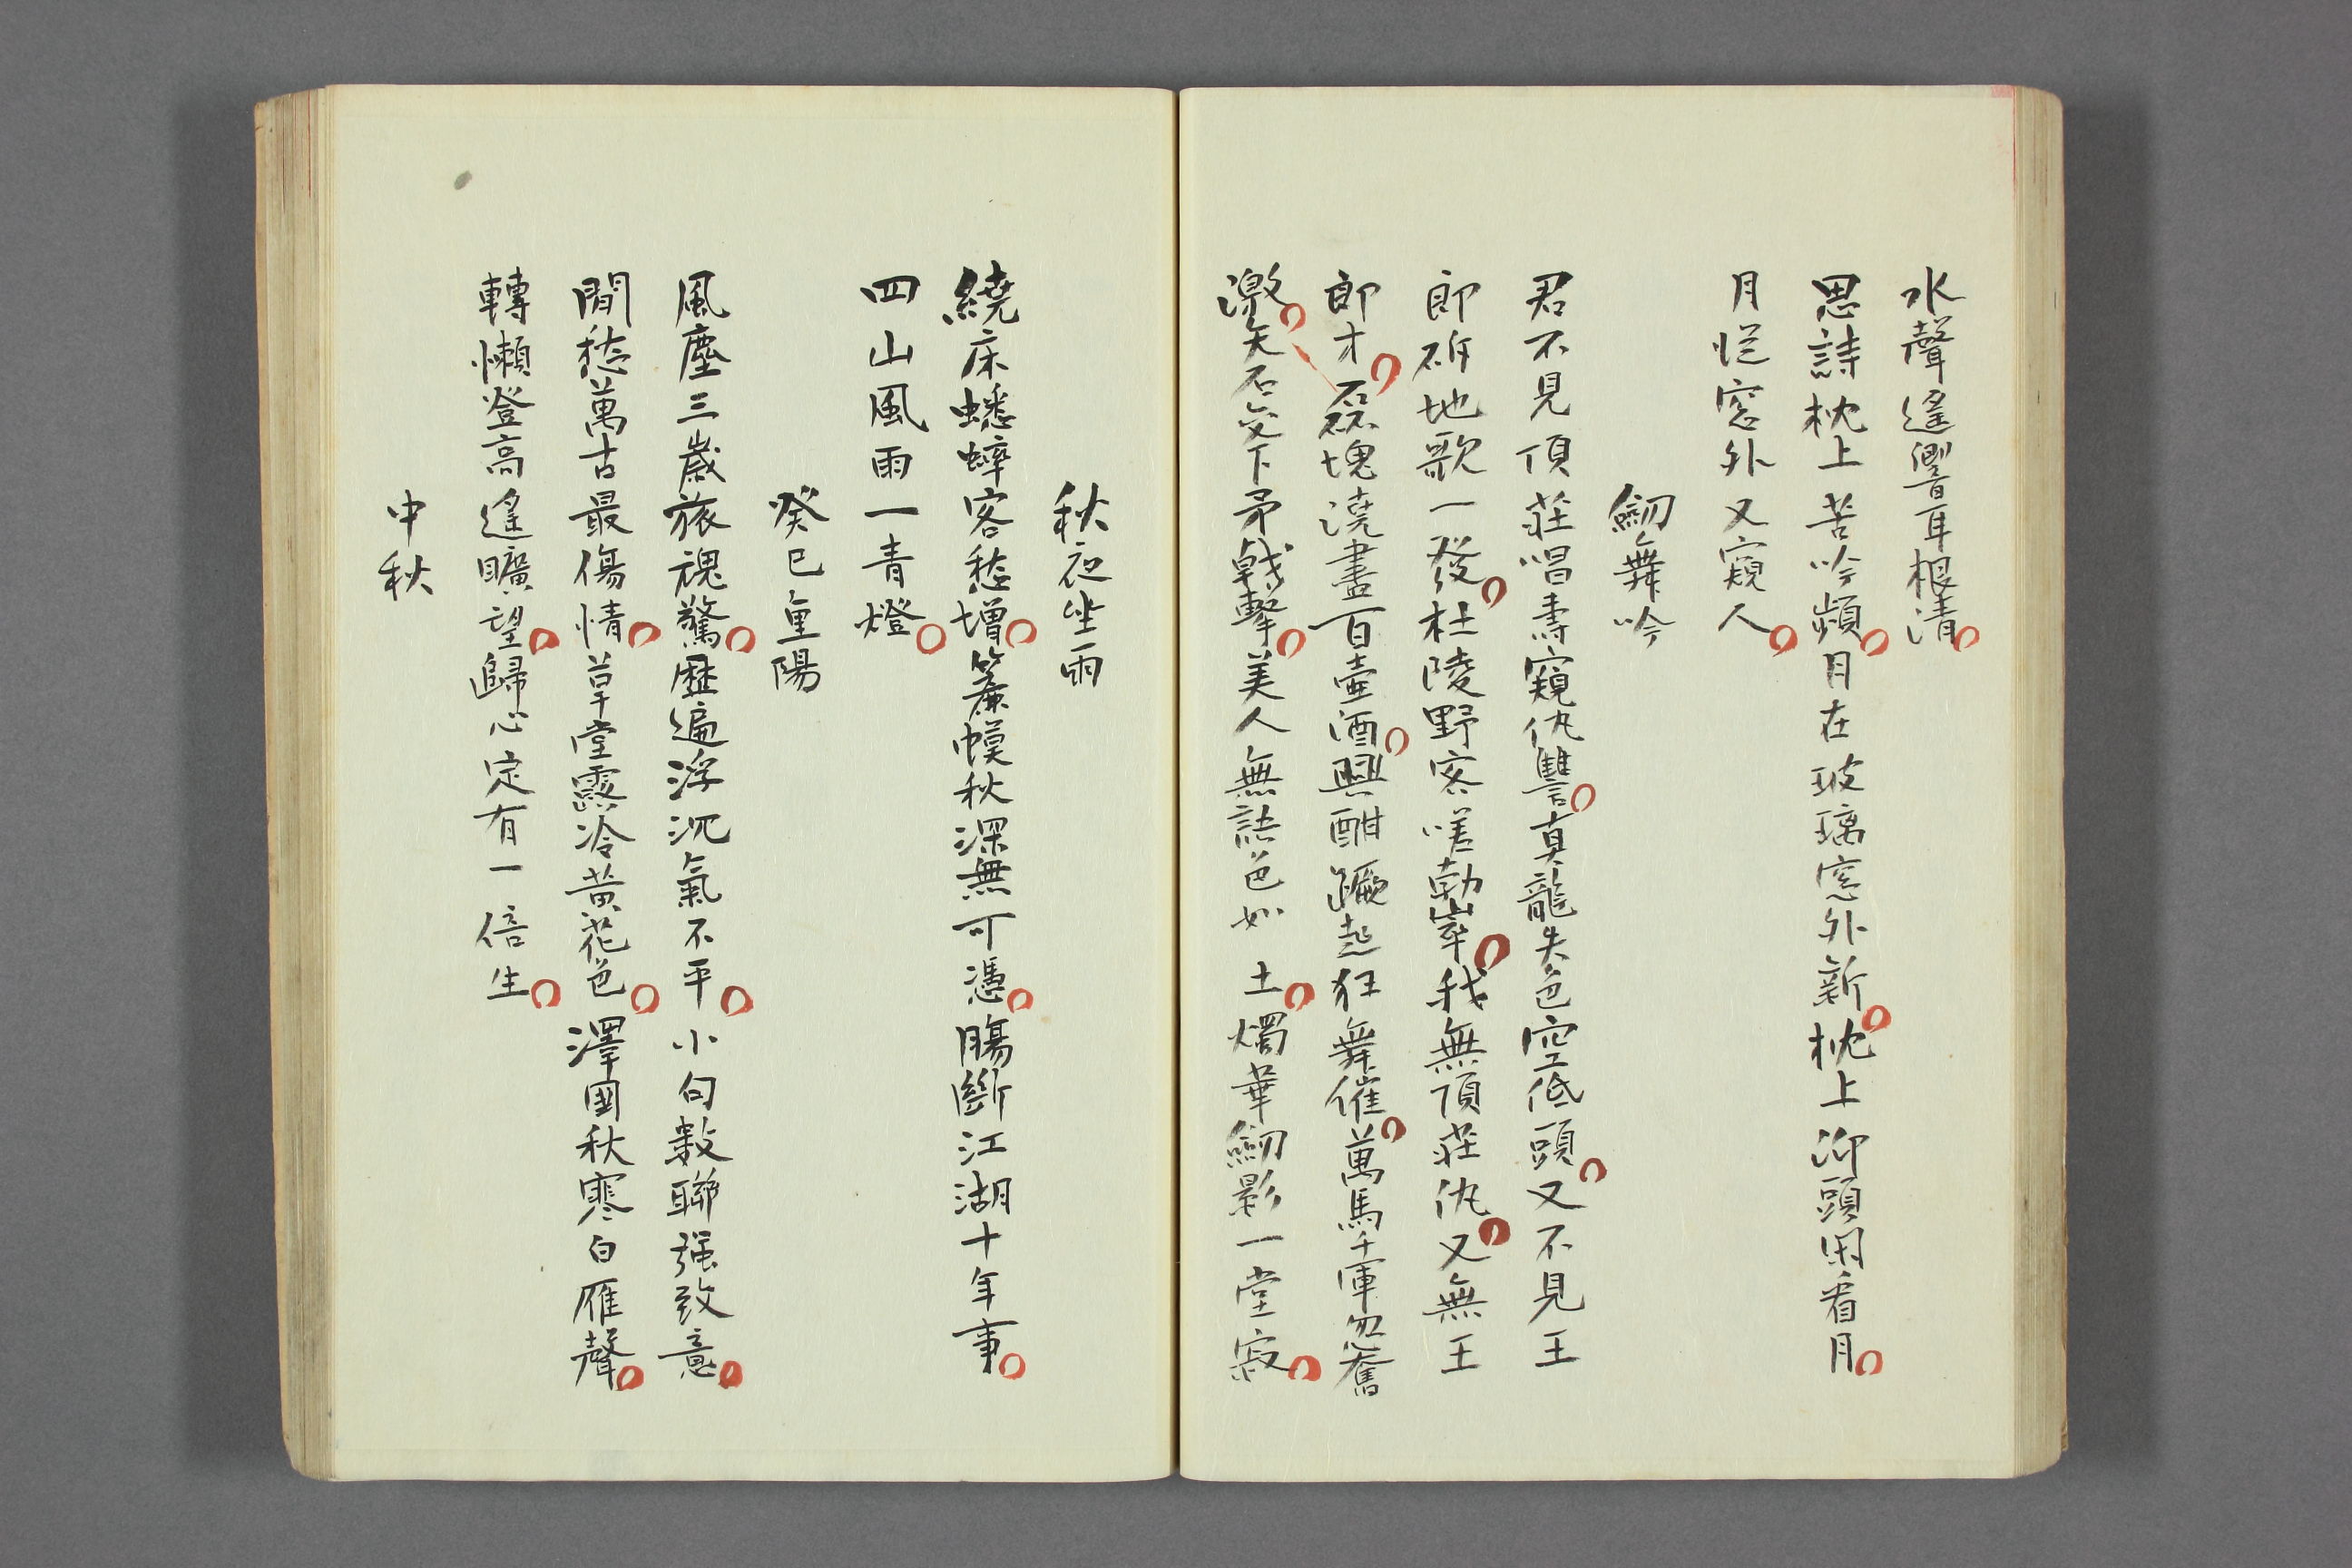 水聲遙響耳根清
思詩枕上苦吟頻月在玻璃窓外新枕上沙頭閑看月
月從窓外又窺人
劒舞吟
君不見項莊唱壽窺仇讐真龍失色空低頭又不見王
郎斫地歌一發杜陵野客嗟勃崒我無項莊仇又無王
郎才磊塊澆盡百壺酒興酣蹶起狂舞催萬馬千軍忽奮
激矢石交下矛戟擊美人無語色如土燭華劒影一堂寂
秋夜坐雨
繞床蟋蟀客愁增簾幙秋深無可憑腸斷江湖十年事
四山風雨一青燈
癸巳重陽
風塵三歲旅魂驚歷遍浮沉氣不平小句數聯強致意
閒愁萬古最傷情草堂露冷黃花色澤國秋寒白雁聲
轉懶登高遙曠望歸心定有一倍生
中秋